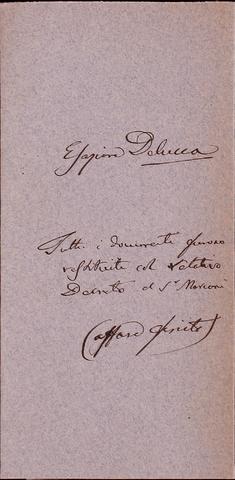 Esposi Delucca
Tutti i documenti furono
restituiti col relativo
Decreto al Sr Marconi
(affare finito)